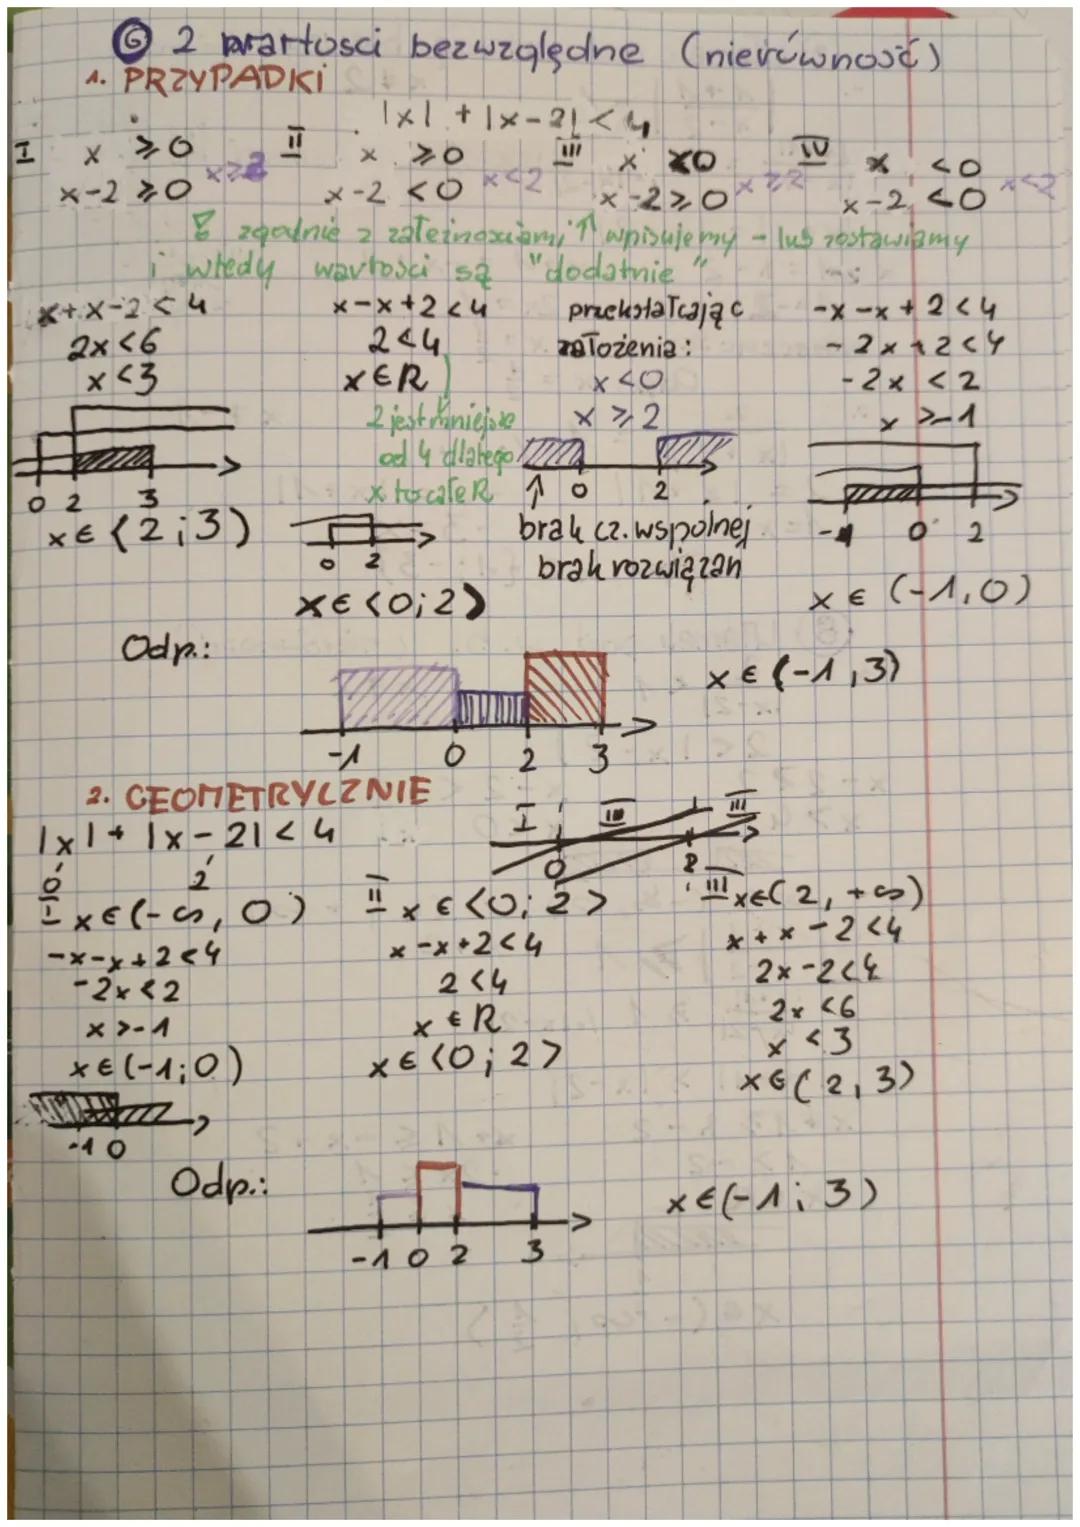 ⑥ 2 wartosci bezwzględne (nierówność)
1. PRZYPADKI
|x| + |x-2| < 4
I x ≥ 0 II x ≥ 0 III x < 0 IV x < 0
x-2 ≥ 0 x ≥ 2 x-2 < 0 x < 2 x-2 ≥ 0 x ≥ 2 x-2 < 0 x < 2
zgodnie z zależnościami ↑ wpisujemy - lub zostawiamy
i wtedy wartości są "dodatnie"
x+x-2 < 4 x-x+2 < 4 przekształcając -x-x+2 < 4
2x < 6 2 < 4 założenia: -2x+2 < 4
x < 3 x ∈ R x < 0 -2x < 2
2 jest mniejsze x ≥ 2 x > -1
od 4 dlatego
x to całe R
0 2 3 ↑ 0 2
x ∈ <2;3) brak cz. wspólnej -1 0 2
0 2 brak rozwiązań
x ∈ <0;2) x ∈ (-1,0)
Odp.: x ∈ (-1,3)
-1 0 2 3
2. GEOMETRYCZNIE
I III III
|x| + |x-2| < 4
0 2
0 2
I x ∈ (-∞, 0) II x ∈ <0;2> III x ∈ (2, +∞)
-x-x+2 < 4 x-x+2 < 4 x+x-2 < 4
-2x < 2 2 < 4 2x-2 < 4
x > -1 x ∈ R 2x < 6
x ∈ (-1;0) x ∈ <0;2> x < 3
x ∈ (2,3)
-1 0
Odp.: x ∈ (-1;3)
-1 0 2 3